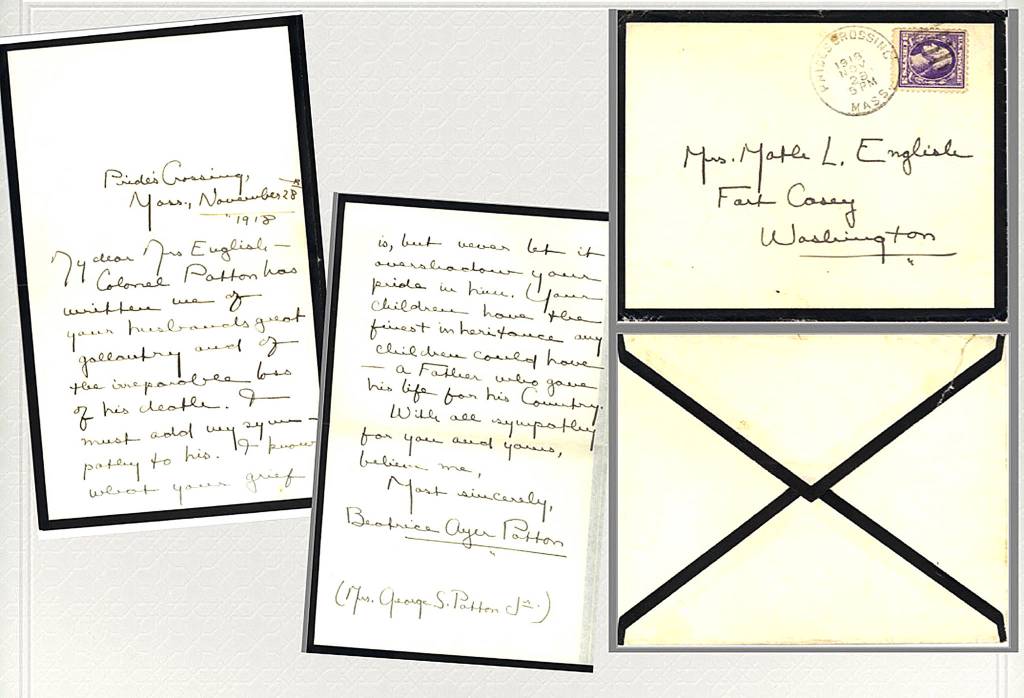 Pride's Crossing,
Mass., November 28th
1918
My dear Mrs English -
Colonel Patton has
written me of
your husbands great
gallantry and of
the irreparable loss
of his death. I
must add my sym-
pathy to his. I know
what your grief
is, but never let it
overshadow your
pride in him. Your
children have the
finest inheritance any
children could have
- a Father who gave
his life for his Country.
With all sympathy
for you and yours,
believe me,
Most sincerely,
Beatrice Ayer Patton
(Mrs. George S. Patton Jr.)
PRIDES CROSSING
1918
NOV
28
5 PM
MASS.
Mrs. Mable L. English
Fort Casey
Washington